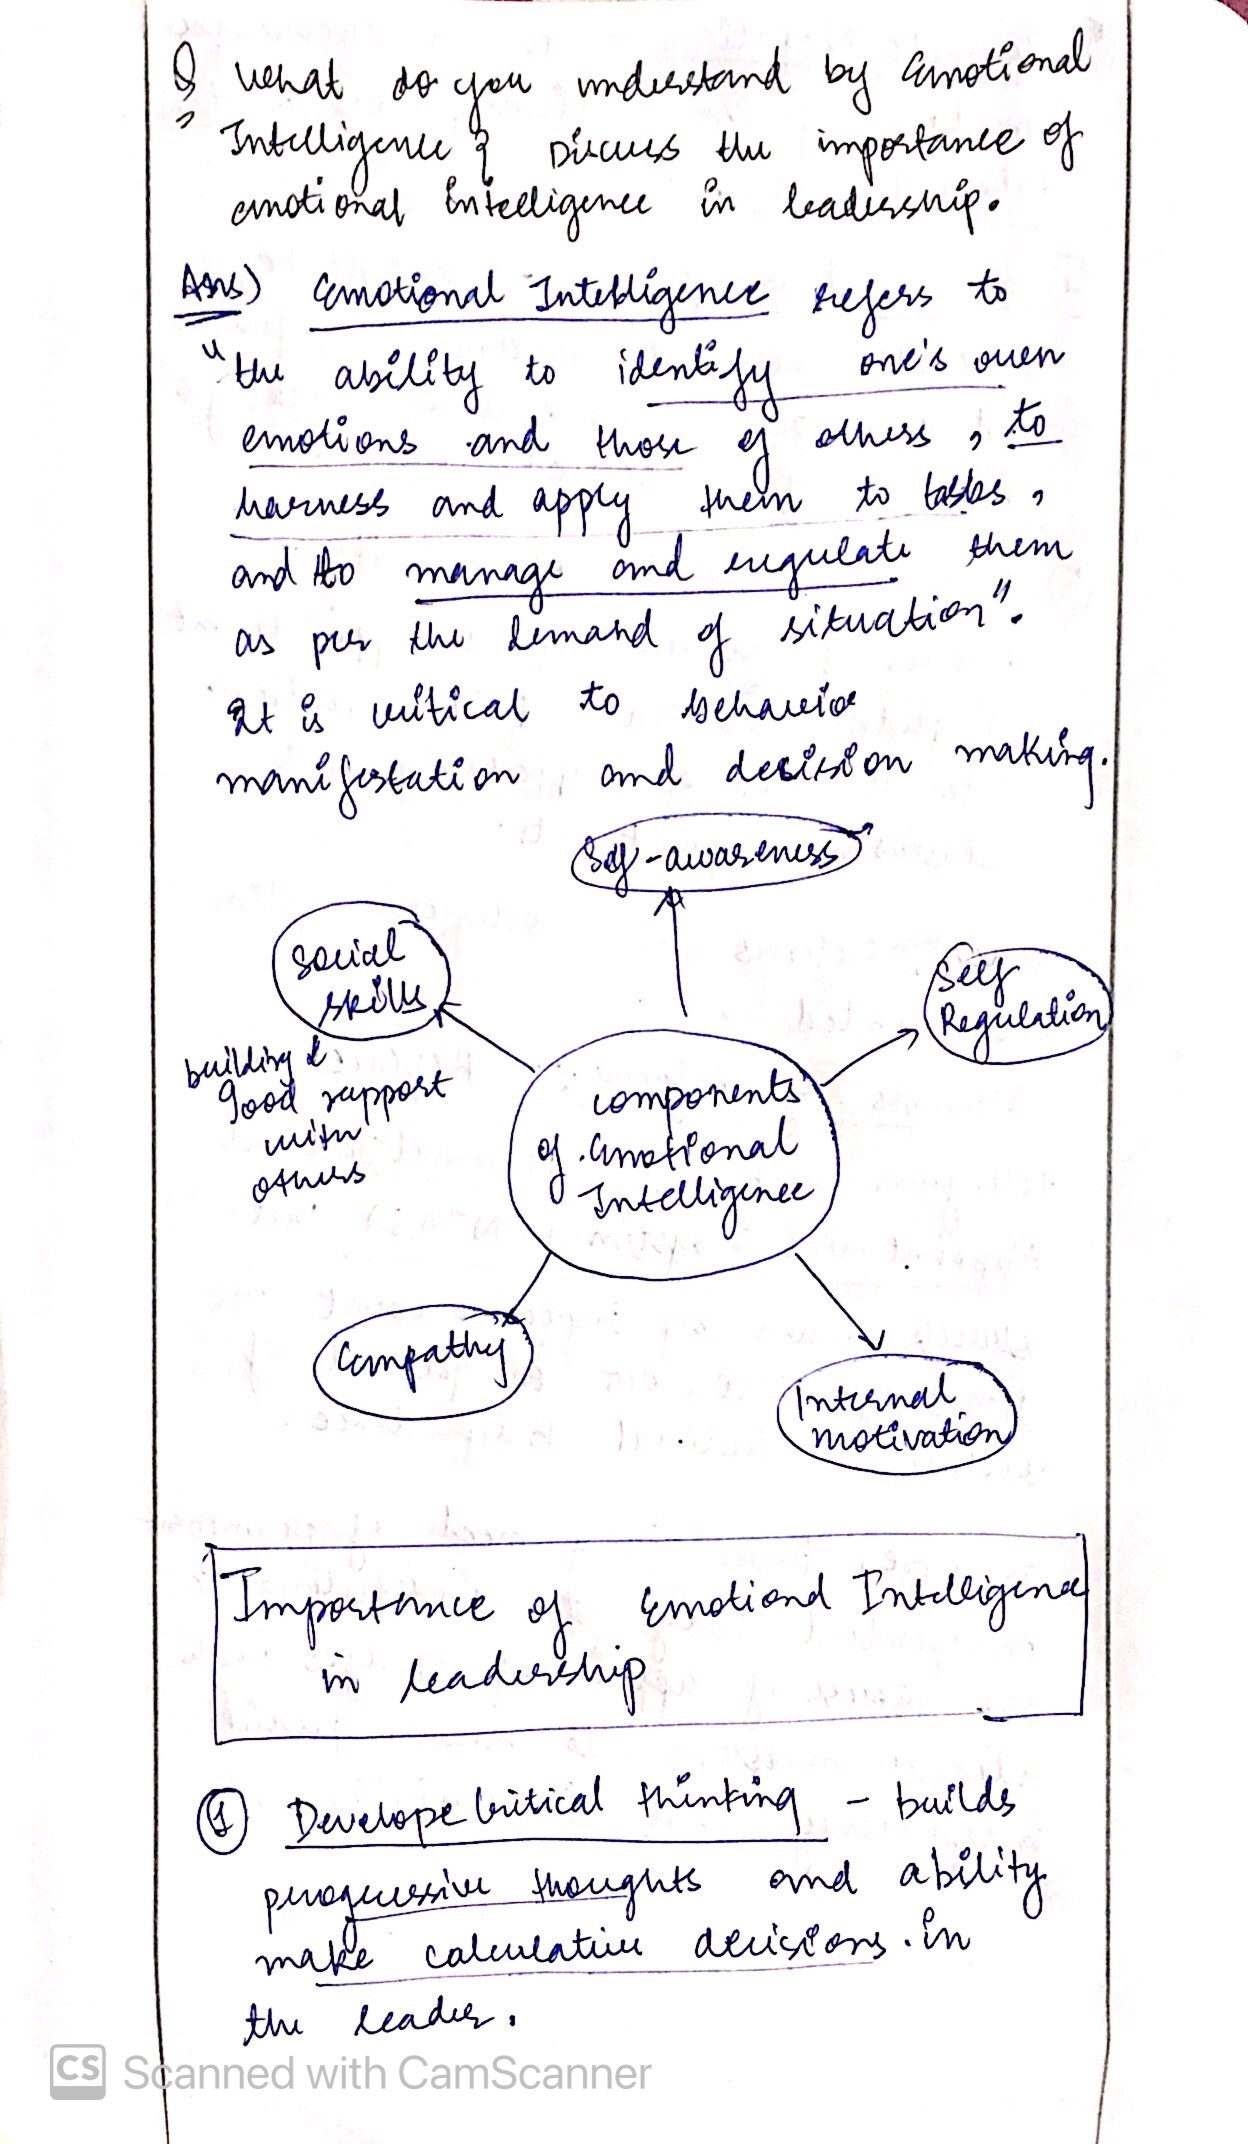 Q What do you understand by Emotional
Intelligence? Discuss the importance of
emotional intelligence in leadership.
Ans) Emotional Intelligence refers to
"the ability to identify one's own
emotions and those of others, to
harness and apply them to tasks,
and to manage and regulate them
as per the demand of situation".
It is critical to behavior
manifestation and decision making.
Self-awareness
Social
skills
building
good rapport
with
others
Self
Regulation
components
of Emotional
Intelligence
Empathy
Internal
motivation
Importance of Emotional Intelligence
in leadership
① Develope Critical thinking - builds
progressive thoughts and ability
make calculative decisions. in
the leader.
CS Scanned with CamScanner